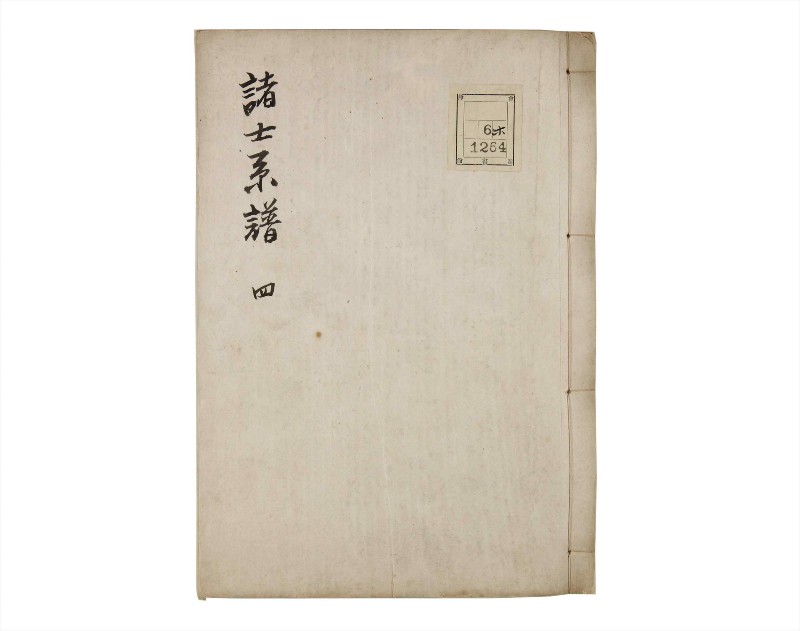 諸士系譜 四
6 木
1264